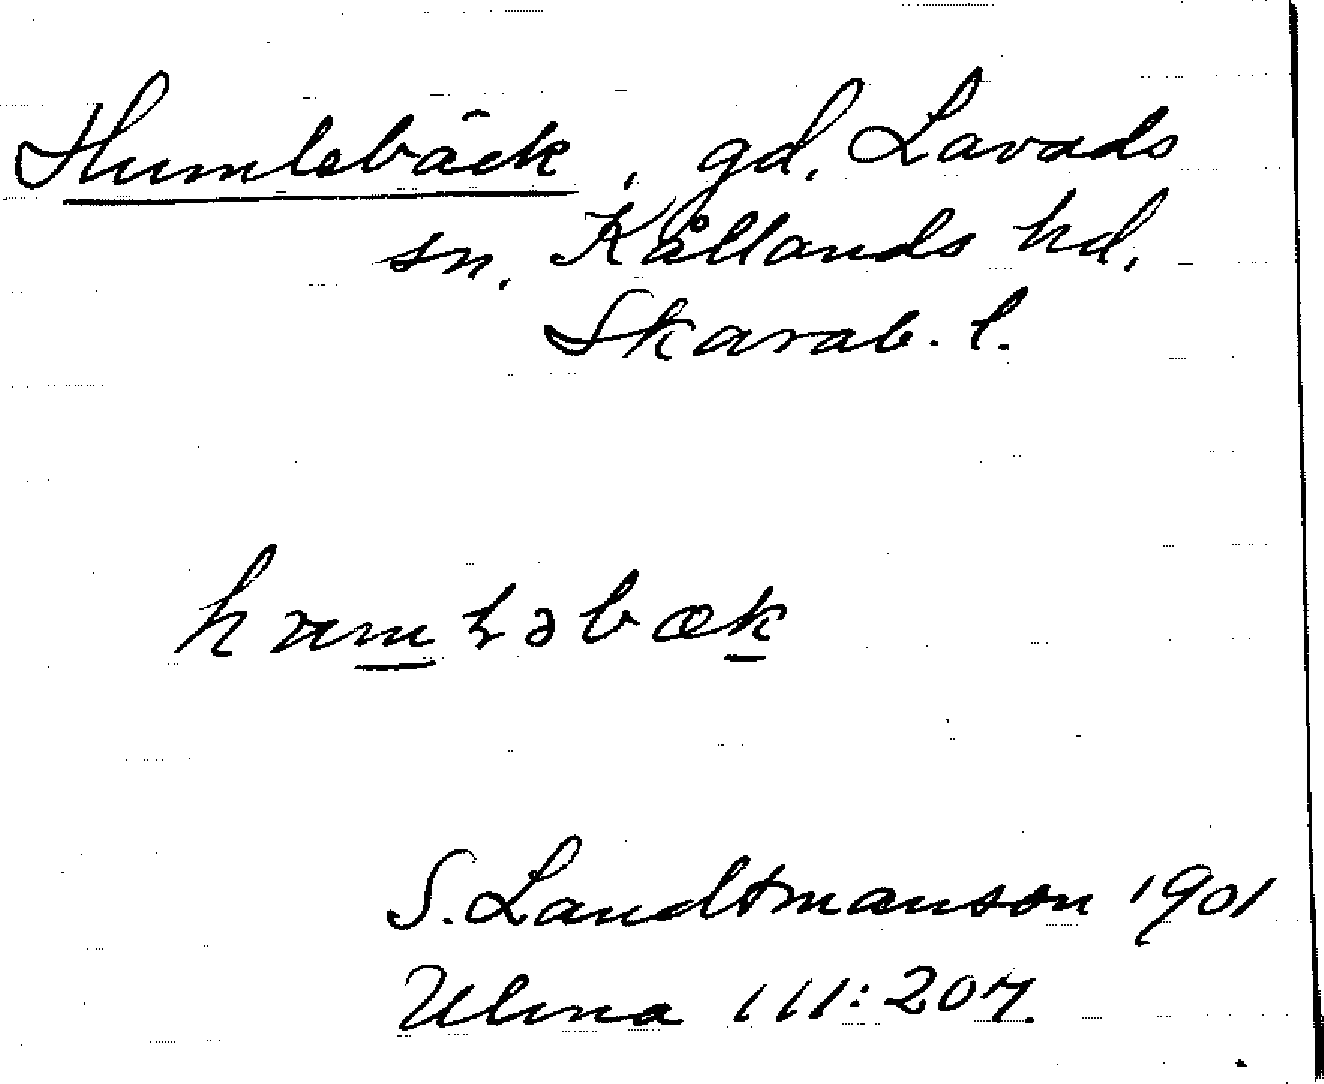 Humlebäck, gd. Lavads
sn. Kållands hd.
Skarab. l.
S. Landtmanson 1901
Ulma 111:207.